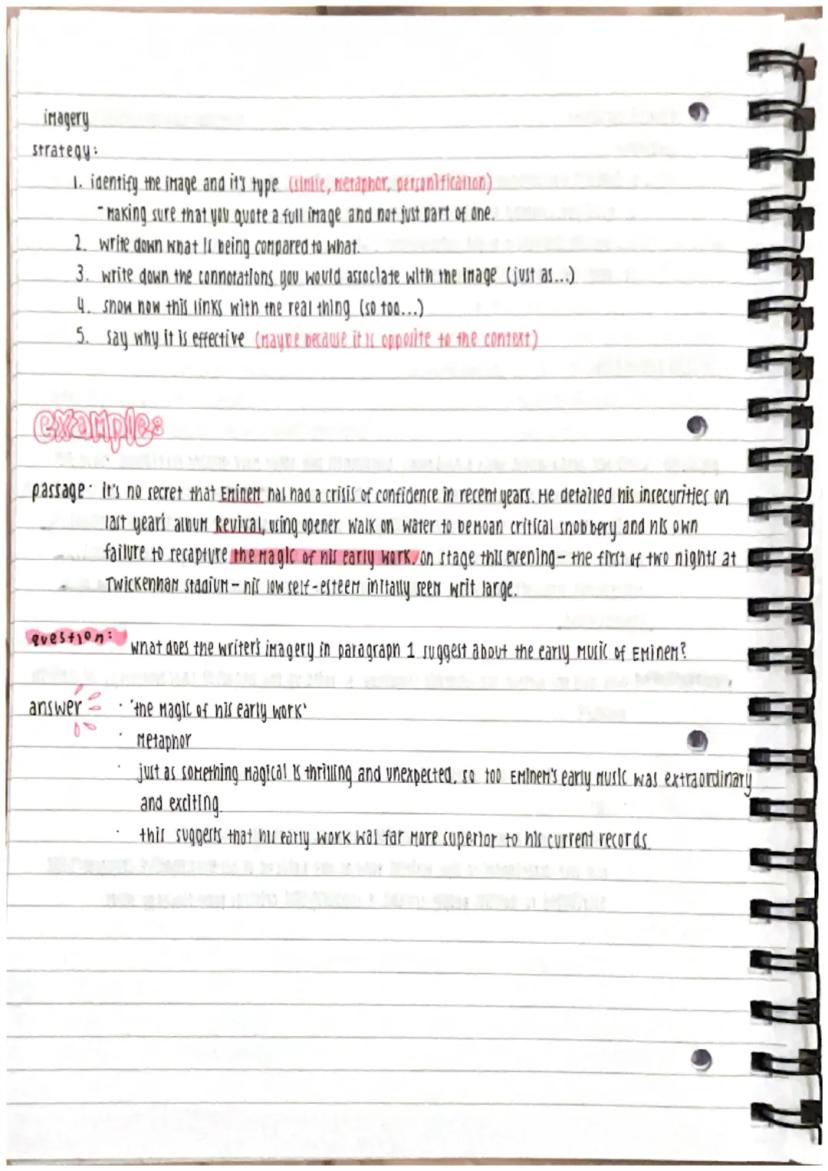 imagery
strategy:
1. identify the image and it's type (simile, metaphor, personification)
- making sure that you quote a full image and not just part of one.
2. write down what is being compared to what.
3. write down the connotations you would associate with the image (just as...)
4. show how this links with the real thing (so too...)
5. say why it is effective (maybe because it is opposite to the context)
example:
passage · it's no secret that Eminem has had a crisis of confidence in recent years. He detailed his insecurities on
last years album Revival, using opener walk on water to bemoan critical snobbery and his own
failure to recapture the magic of his early work. on stage this evening - the first of two nights at
Twickenham stadium - his low self-esteem initally seem writ large.
question: what does the writer's imagery in paragraph 1 suggest about the early music of Eminem?
answer · 'the magic of his early work'
· metaphor
· just as something magical is thrilling and unexpected, so too Eminem's early music was extraordinary
and exciting.
· this suggests that his early work was far more superior to his current records.